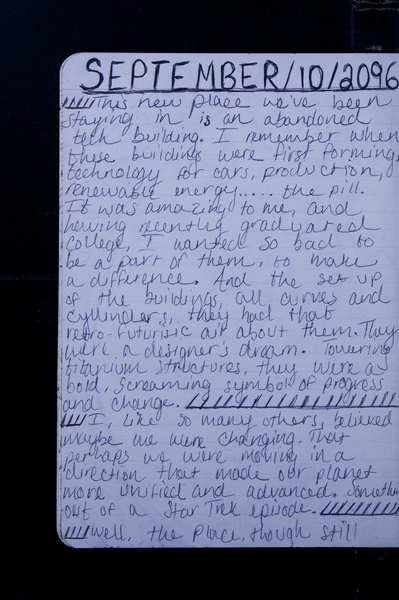 SEPTEMBER/10/2096
This new place we've been
staying in is an abandoned
tech building. I remember when
these buildings were first forming,
technology for cars, production,
renewable energy..... the pill.
It was amazing to me, and
having recently graduated
college, I wanted so bad to
be a part of them, to make
a difference. And the set up
of the buildings, all curves and
cyllinders, they had that
retro-futurisic air about them. They
were a designer's dream. Towering
titanium structures, they were a
bold, screaming symbol of progress
and change.
I, like so many others, believed
maybe we were changing. That
perhaps we were moving in a
direction that made our planet
more unified and advanced. Somethin
out of a Star Trek episode.
Well, the place, though still